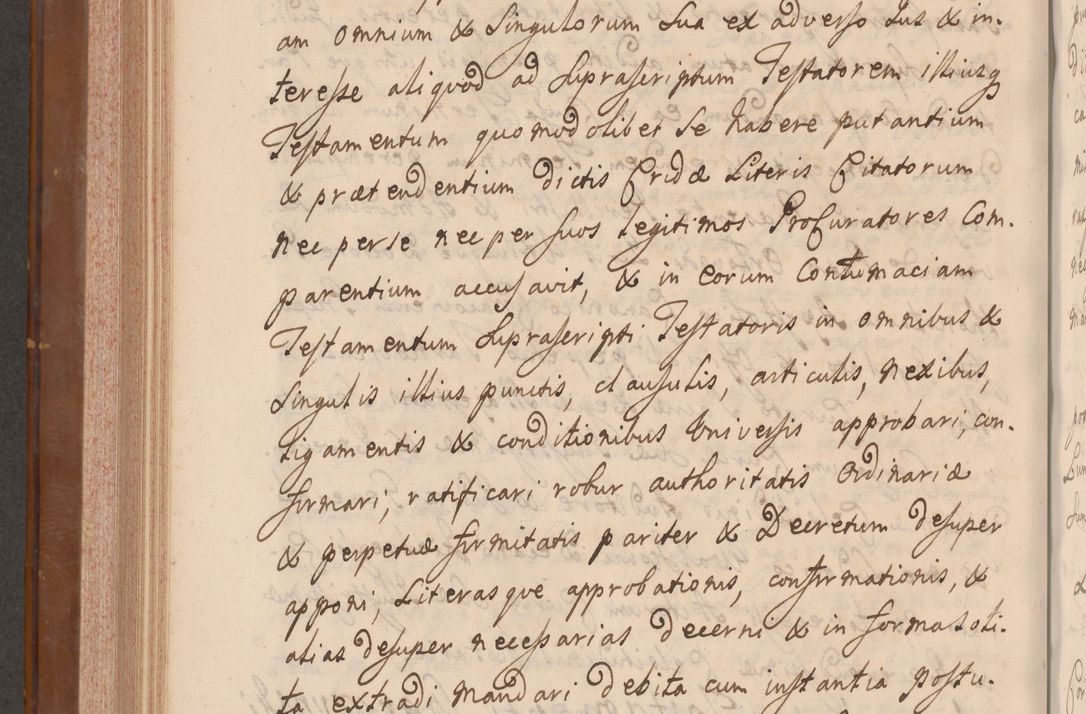 am omnium & Singulorum Sua ex adverso Jus & in-
teresse aliquod ad Suprascriptum Testatorem illiusq
Testamentum quomodolibet Se habere putantium
& prætendentium dictis Cridæ Literis Citatorum
nec per se nec per suos legitimos Procuratores Com-
parentium accusavit, & in eorum Contumaciam
Testamentum Suprascripti Testatoris in omnibus &
Singulis illius punctis, clausulis, articulis, nexibus,
ligamentis & conditionibus Universis approbari, con-
firmari, ratificari robur authoritatis Ordinariæ
& perpetuæ firmitatis pariter & Decretum desuper
apponi, Literasque approbationis, confirmationis, &
alias desuper necessarias decerni & in forma soli-
ta extradi mandari debita cum instantia postu-